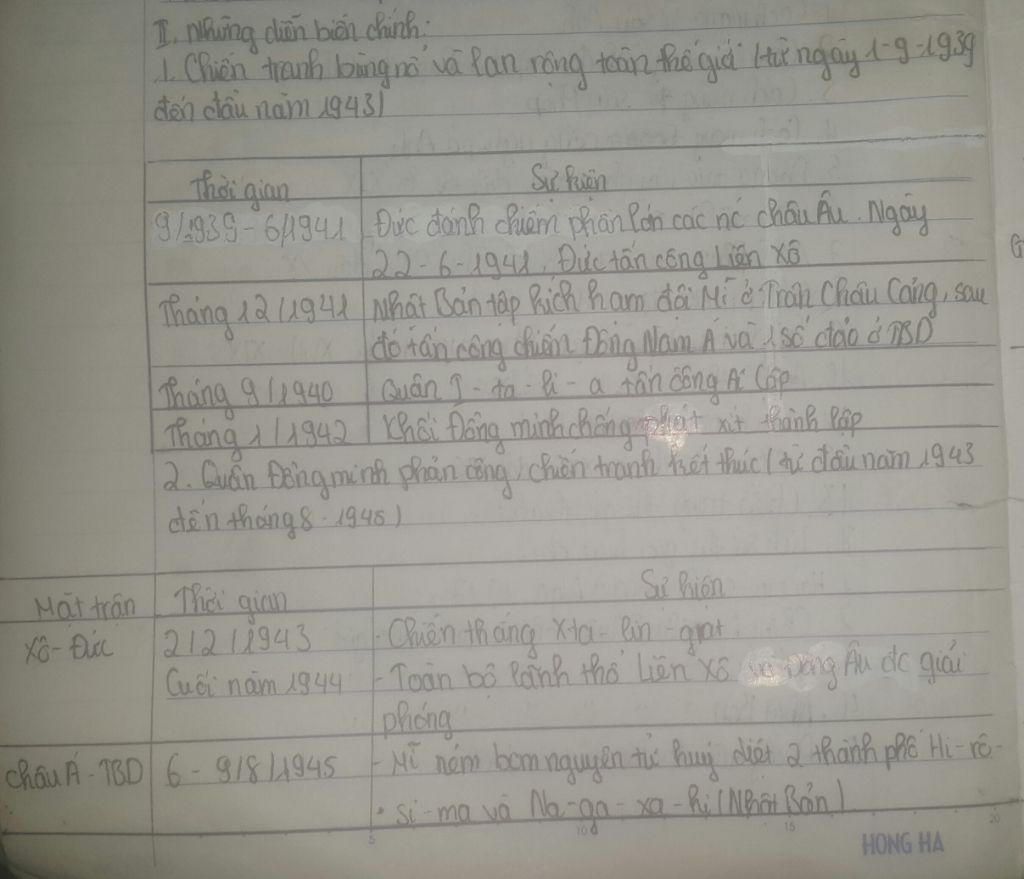 II. Những diễn biến chính:
1. Chiến tranh bùng nổ và lan rộng toàn thế giới (từ ngày 1-9-1939
đến đầu năm 1943)
Thời gian Sự kiện
9/1939-6/1941 Đức đánh chiếm phần lớn các nc châu Âu. Ngày
22-6-1941, Đức tấn công Liên Xô
Tháng 12/1941 Nhật Bản tập kích hạm đội Mĩ ở Trân Châu Cảng, sau
đó tấn công chiếm Đông Nam Á và 1 số đảo ở TBD
Tháng 9/1940 Quân I-ta-li-a tấn công Ai Cập
Tháng 1/1942 Khối Đồng minh chống phát xít thành lập
2. Quân Đồng minh phản công, chiến tranh kết thúc (từ đầu năm 1943
đến tháng 8-1945)
Mặt trận Thời gian Sự kiện
Xô-Đức 2/2/1943 - Chiến thắng Xta-lin-grat
Cuối năm 1944 - Toàn bộ lãnh thổ Liên Xô và Đông Âu đc giải
phóng
Châu Á-TBD 6-9/8/1945 - Mĩ ném bom nguyên tử huỷ diệt 2 thành phố Hi-rô-
si-ma và Na-ga-xa-ki (Nhật Bản)
5 10 15 20
HONG HA